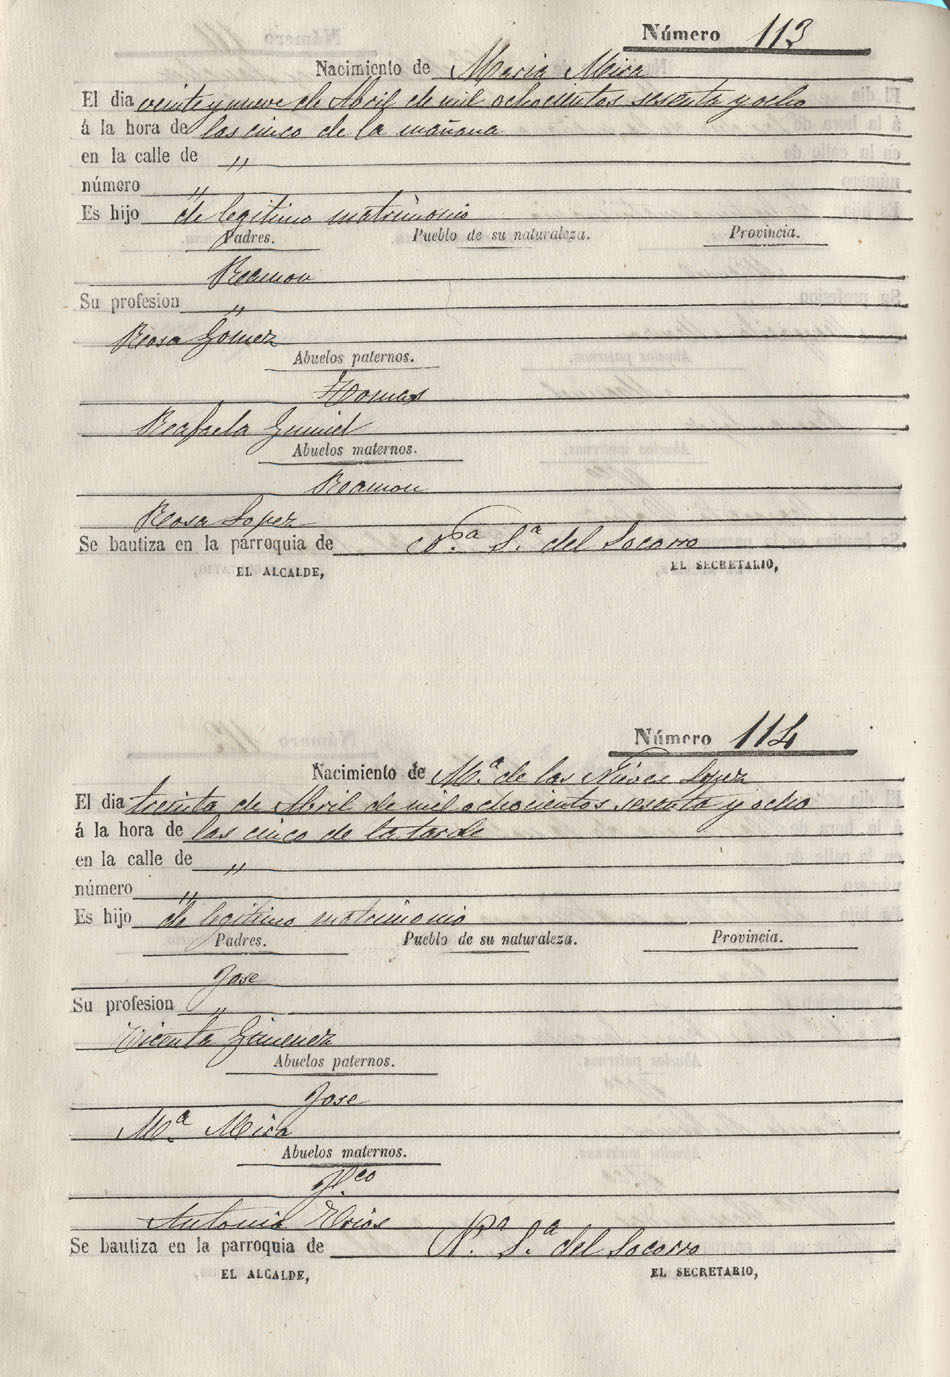 Número 113
Nacimiento de Maria Mira
El dia veinte y nueve de Abril de mil ochocientos sesenta y ocho
á la hora de las cinco de la mañana
en la calle de "
número "
Es hijo de legitimo matrimonio
Padres. Pueblo de su naturaleza. Provincia.
Ramon
Su profesion "
Rosa Gomez
Abuelos paternos.
Tomas
Rafaela
Abuelos maternos.
Ramon
Rosa Lopez
Se bautiza en la parroquia de N.ª S.ª del Socorro
EL ALCALDE, EL SECRETARIO,
Número 114
Nacimiento de M.ª de las Nieves Lopez
El dia treinta de Abril de mil ochocientos sesenta y ocho
á la hora de las cinco de la tarde
en la calle de "
número "
Es hijo de legitimo matrimonio
Padres. Pueblo de su naturaleza. Provincia.
Jose
Su profesion "
Vicenta Gimenez
Abuelos paternos.
Jose
M.ª Mira
Abuelos maternos.
Fco
Antonia
Se bautiza en la parroquia de N.ª S.ª del Socorro
EL ALCALDE, EL SECRETARIO,